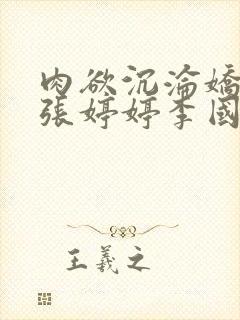 肉欲沉淪嬌
張婷婷李國
王羲之